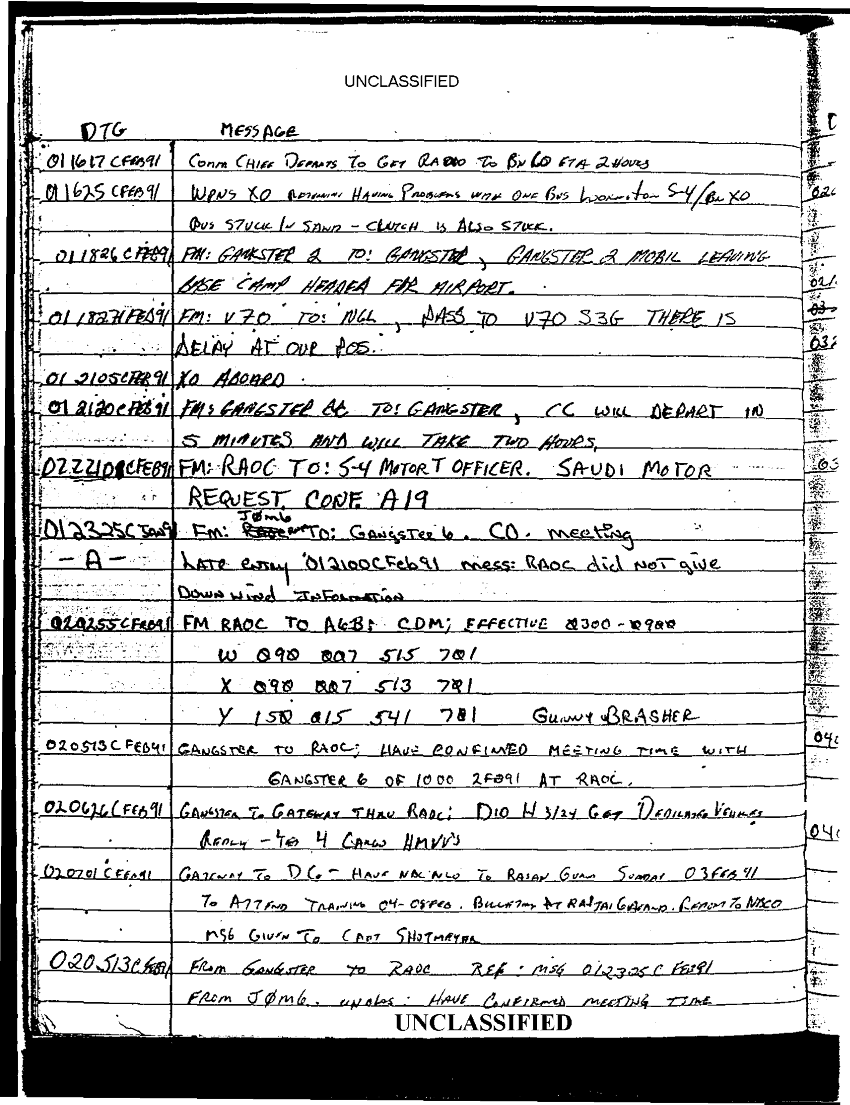 UNCLASSIFIED
DTG MESSAGE
011617 CFEB91 COMM CHIEF DEPARTS TO GET RADIO TO BN CO ETA 2 HOURS
011625 CFEB91 WPNS XO HAVING PROBLEMS WITH ONE BUS S-4/BN XO
BUS STUCK IN SAND - CLUTCH IS ALSO STUCK.
011826 CFEB91 FM: GANKSTER 2 TO: GANGSTER, GANGSTER 2 MOBIL LEAVING
BASE CAMP HEADED FOR AIRPORT.
011827 FEB91 FM: V70 TO: NGL, PASS TO V70 S3G THERE IS
DELAY AT OUR POS.
012105CFEB91 XO ABOARD
012120CFEB91 FM: GANGSTER CC TO: GANGSTER, CC WILL DEPART IN
5 MINUTES AND WILL TAKE TWO HOURS,
CFEB91 FM: RAOC TO: S-4 MOTOR T OFFICER. SAUDI MOTOR
REQUEST CONF. A19
JØM6
012325C JAN91 FM: TO: GANGSTER 6. CO. meeting
- A - LATE entry 012100CFeb91 mess: RAOC did NOT give
DOWN WIND INFORMATION
020255CFEB91 FM RAOC TO A6B: CDM; EFFECTIVE 0300-0900
W 090 007 515 701
X 090 007 513 701
Y 150 015 541 701 GUNNY BRASHER
020513C FEB91 GANGSTER TO RAOC; HAVE CONFIMED MEETING TIME WITH
GANGSTER 6 OF 1000 2FEB91 AT RAOC.
020626CFEB91 GANGSTER TO GATEWAY THRU RAOC; DID H 3/24 GET DEDICATED VEHICLES
REPLY - YES 4 CARGO HMVV'S
020701 CFEB91 GATEWAY TO DC - HAVE TO SUNDAY 03FEB91
TO ATTEND TRAINING 04-08FEB. REPORT TO
MSG GIVEN TO CAPT
020513CFEB91 FROM GANGSTER TO RAOC REF: MSG 012325C FEB91
FROM JØM6. HAVE CONFIRMED MEETING TIME
UNCLASSIFIED